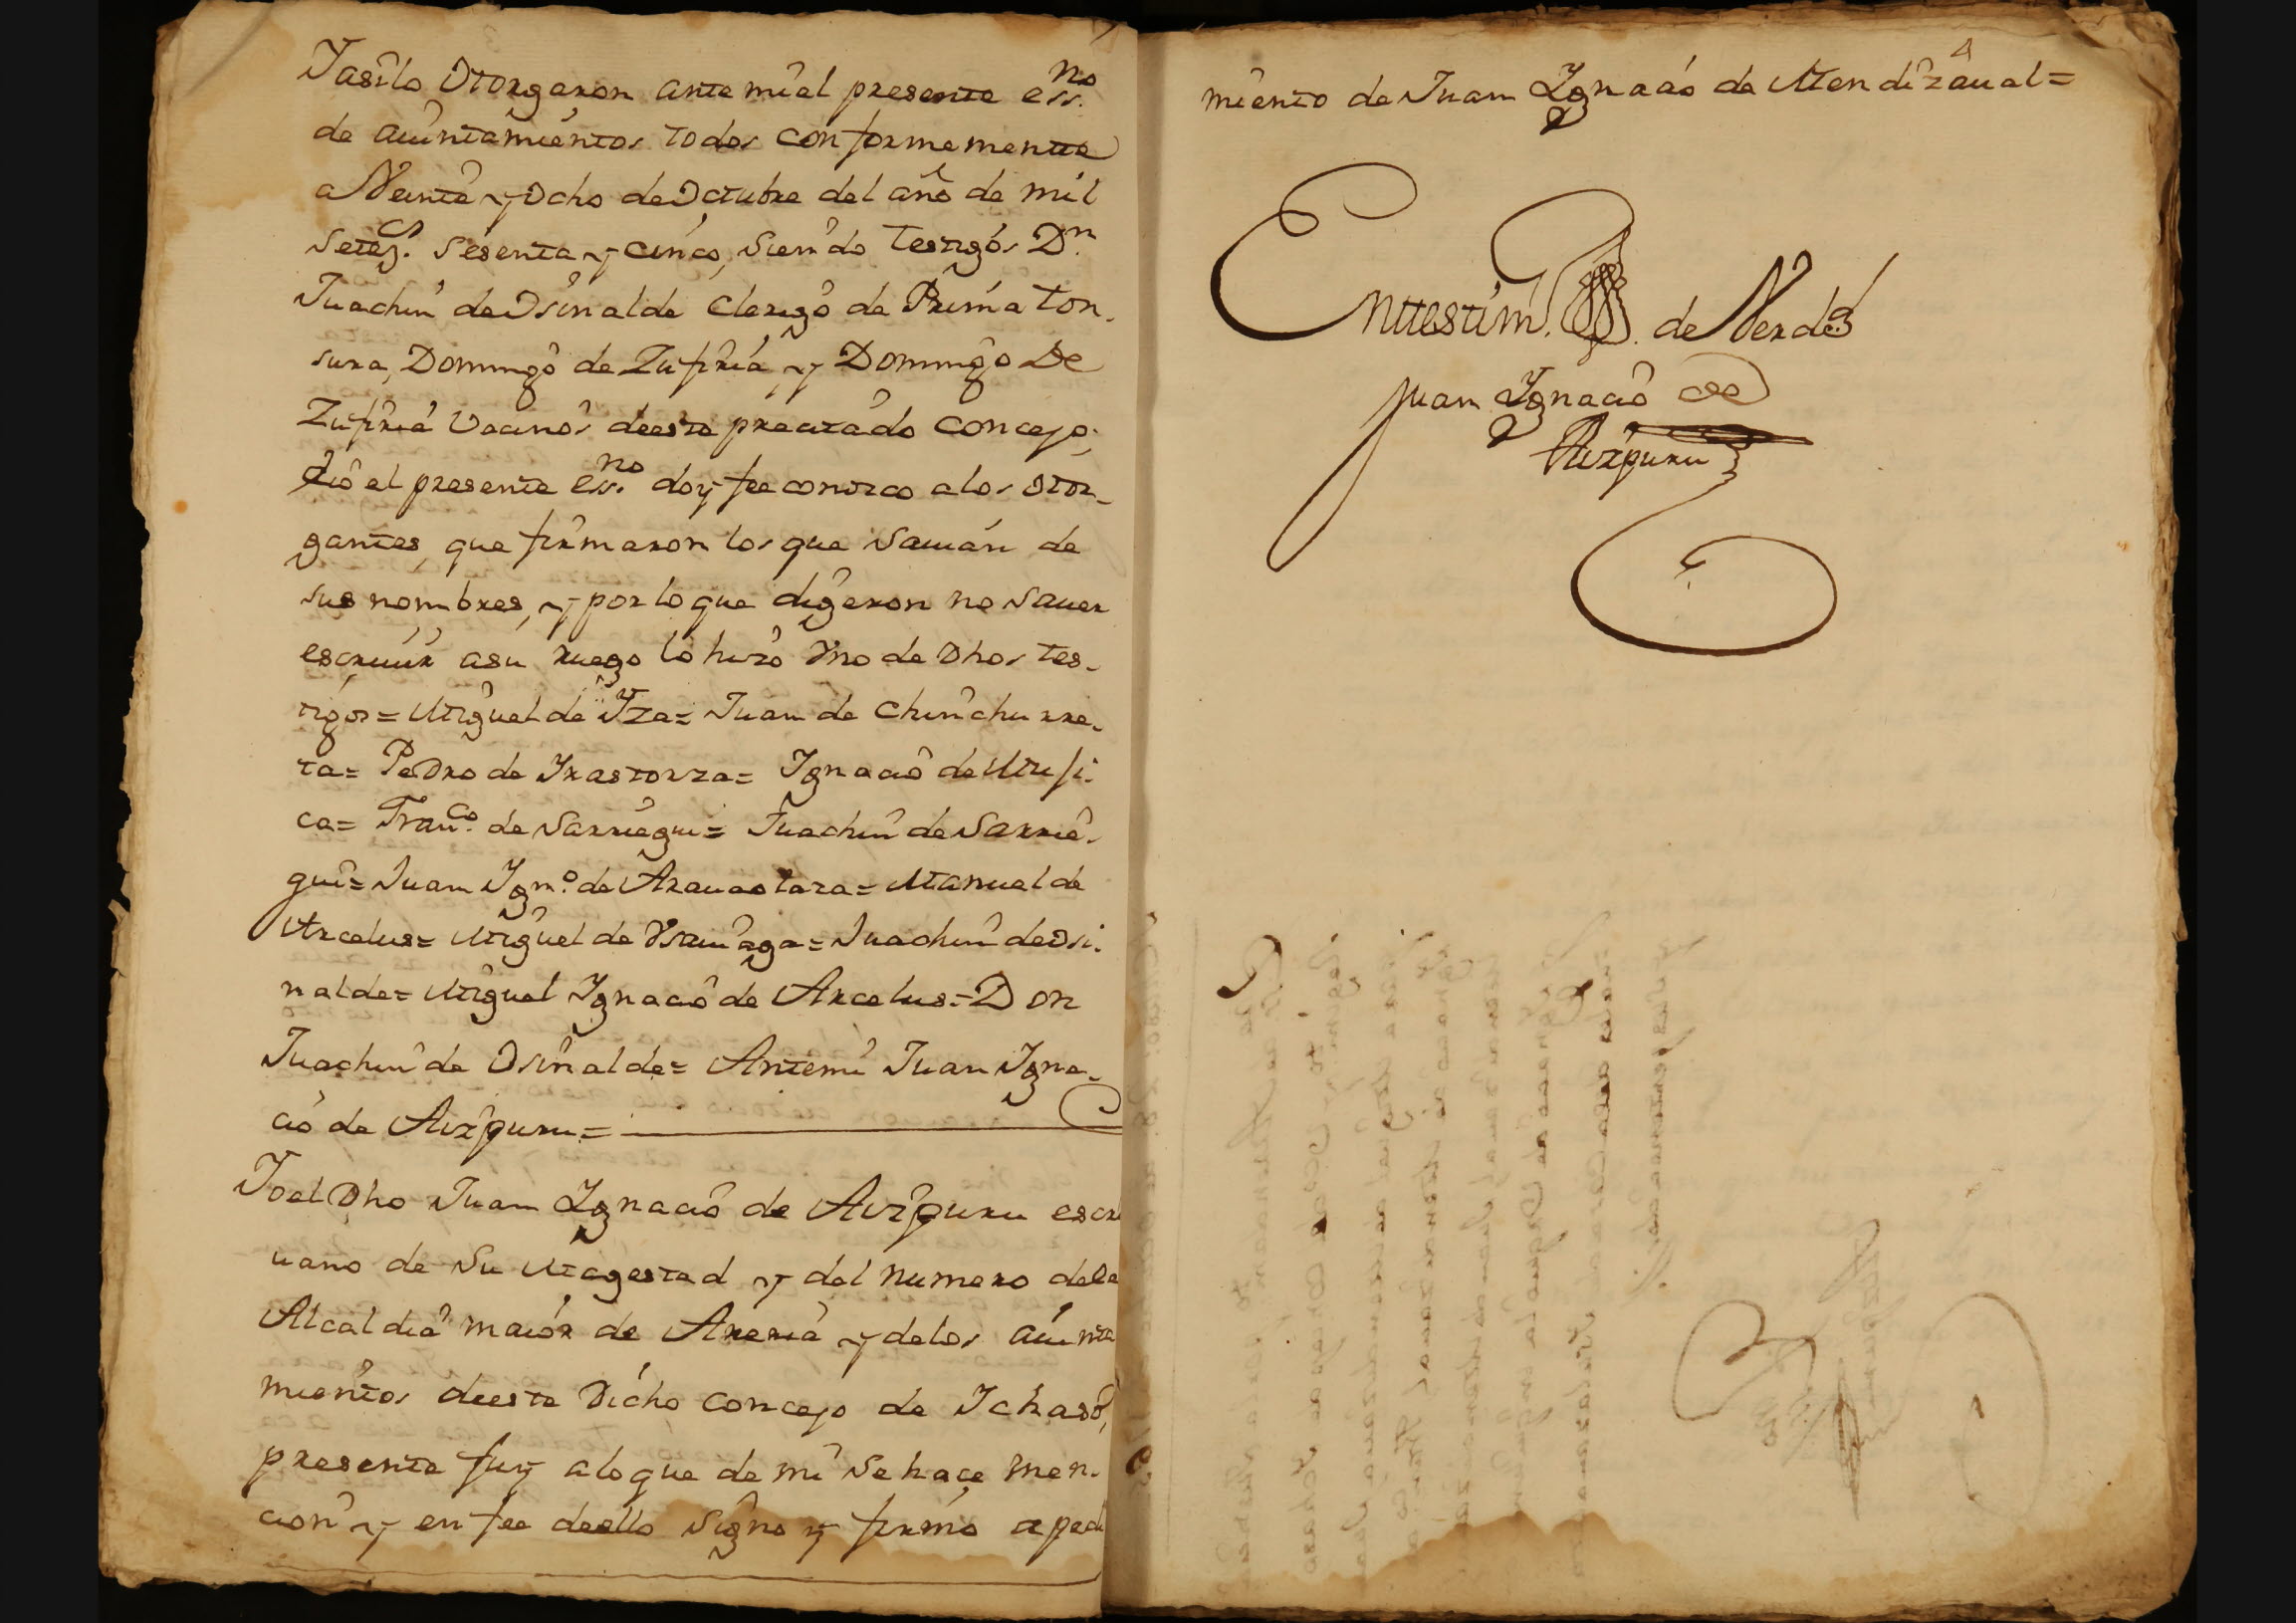 Yasilo Otorgaron ante mi el presente ess.no
de aiuntamientos todos conformemente
a Veinte y Ocho de Octubre del año de mil
setez.s sesenta y cinco, siendo testigos D.n
Juachin de Osinalde clerigo de Prima ton-
sura, Domingo de Zufiria y Domingo De
Zufiria Vecinos deeste precitado Concejo;
e Io el presente ess.no doy fee conozco a los otor-
gantes, que firmaron los que savian de
sus nombres, y por lo que digeron no saver
escriuir asu ruego lo hizo Vno de Dhos tes-
tigos = Miguel de Yza = Juan de Chinchurre-
ta = Pedro de Yrastorza = Ygnacio de Muxi-
ca = Fran.co de Sarriegui = Juachin de Sarrie-
gui = Juan Ygn.o de Arauaolaza = Manuel de
Arcelus = Miguel de Vsauiaga = Juachin de Osi-
nalde = Miguel Ygnacio de Arcelus = Don
Juachin de Osinalde = Antemi Juan Ygna-
cio de Aizpuru =
Yo el Dho Juan Ygnacio de Aizpuru escri
uano de su Magestad y del numero dela
Alcaldia maior de Areria y delos aiunta
mientos deeste Dicho Concejo de Ichaso,
presente fuy alo que de mi se hace men-
cion y en fee deello signo y firmo a pedi
4
miento de Juan Ygnacio de Mendizaual =
Enttestim.o de Verdad
Juan Ygnacio de
Aizpuru